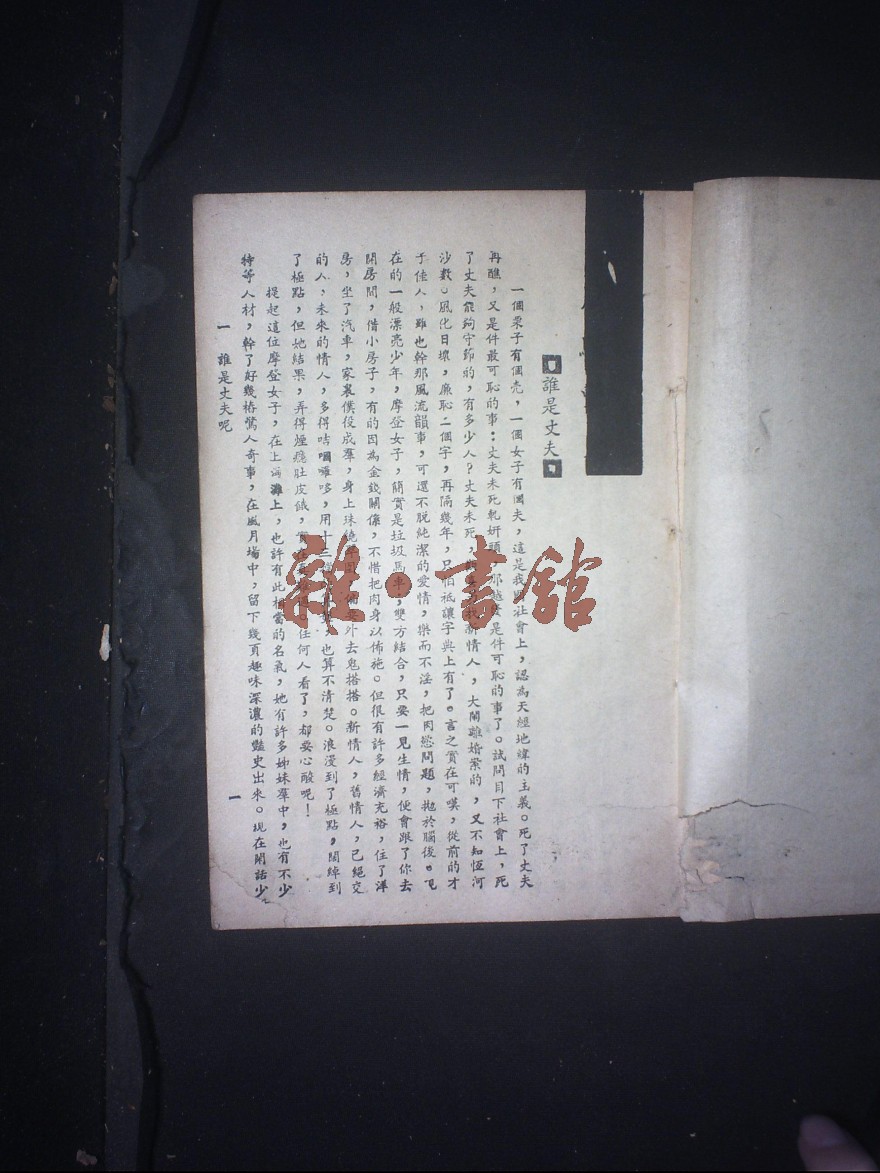 誰是丈夫
一個栗子有個壳，一個女子有個夫，這是我國社會上，認為天經地緯的主義。死了丈夫
再醮，又是件最可恥的事：丈夫未死軋姘頭，那越發是件可恥的事了。試問目下社會上，死
了丈夫能夠守節的，有多少人？丈夫未死，新情人，大鬧離婚案的，又不知恆河
沙數。風化日壞，廉恥二個字，再隔幾年，只怕祗讓字典上有了。言之實在可嘆，從前的才
子佳人，雖也幹那風流韻事，可還不脫純潔的愛情，樂而不淫，把肉慾問題，拋於腦後。現
在的一般漂亮少年，摩登女子，簡實是垃圾馬車，雙方結合，只要一見生情，便會跟了你去
開房間，借小房子，有的因為金錢關係，不惜把肉身以佈施。但很有許多經濟充裕，住了洋
房，坐了汽車，家裏僕役成羣，身上珠繞，外去鬼搭搭。新情人，舊情人，已絕交
的人，未來的情人，多得咭嘓囉哆，用十三，也算不清楚。浪漫到了極點，闊綽到
了極點，但她結果，弄得煙癮肚皮餓，任何人看了，都要心酸呢！
提起這位摩登女子，在上海灘上，也許有此相當的名氣，她有許多姊妹羣中，也有不少
特等人材，幹了好幾樁驚人奇事，在風月場中，留下幾頁趣味深濃的豔史出來。現在閒話少
一 誰是丈夫呢
一
雜·書館